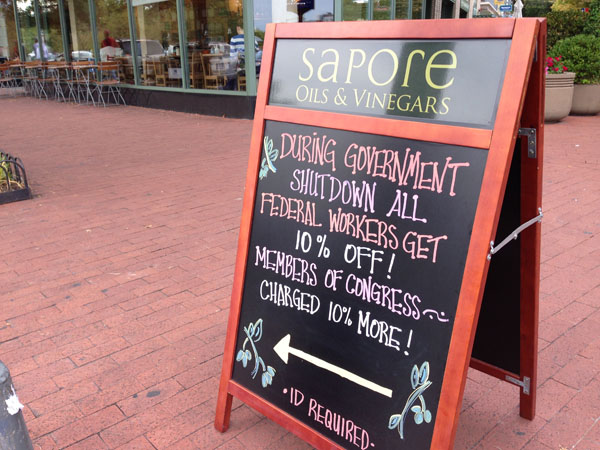 sapore
OILS & VINEGARS
DURING GOVERNMENT
SHUTDOWN ALL
FEDERAL WORKERS GET
10% OFF!
MEMBERS OF CONGRESS~
CHARGED 10% MORE!
•ID REQUIRED-